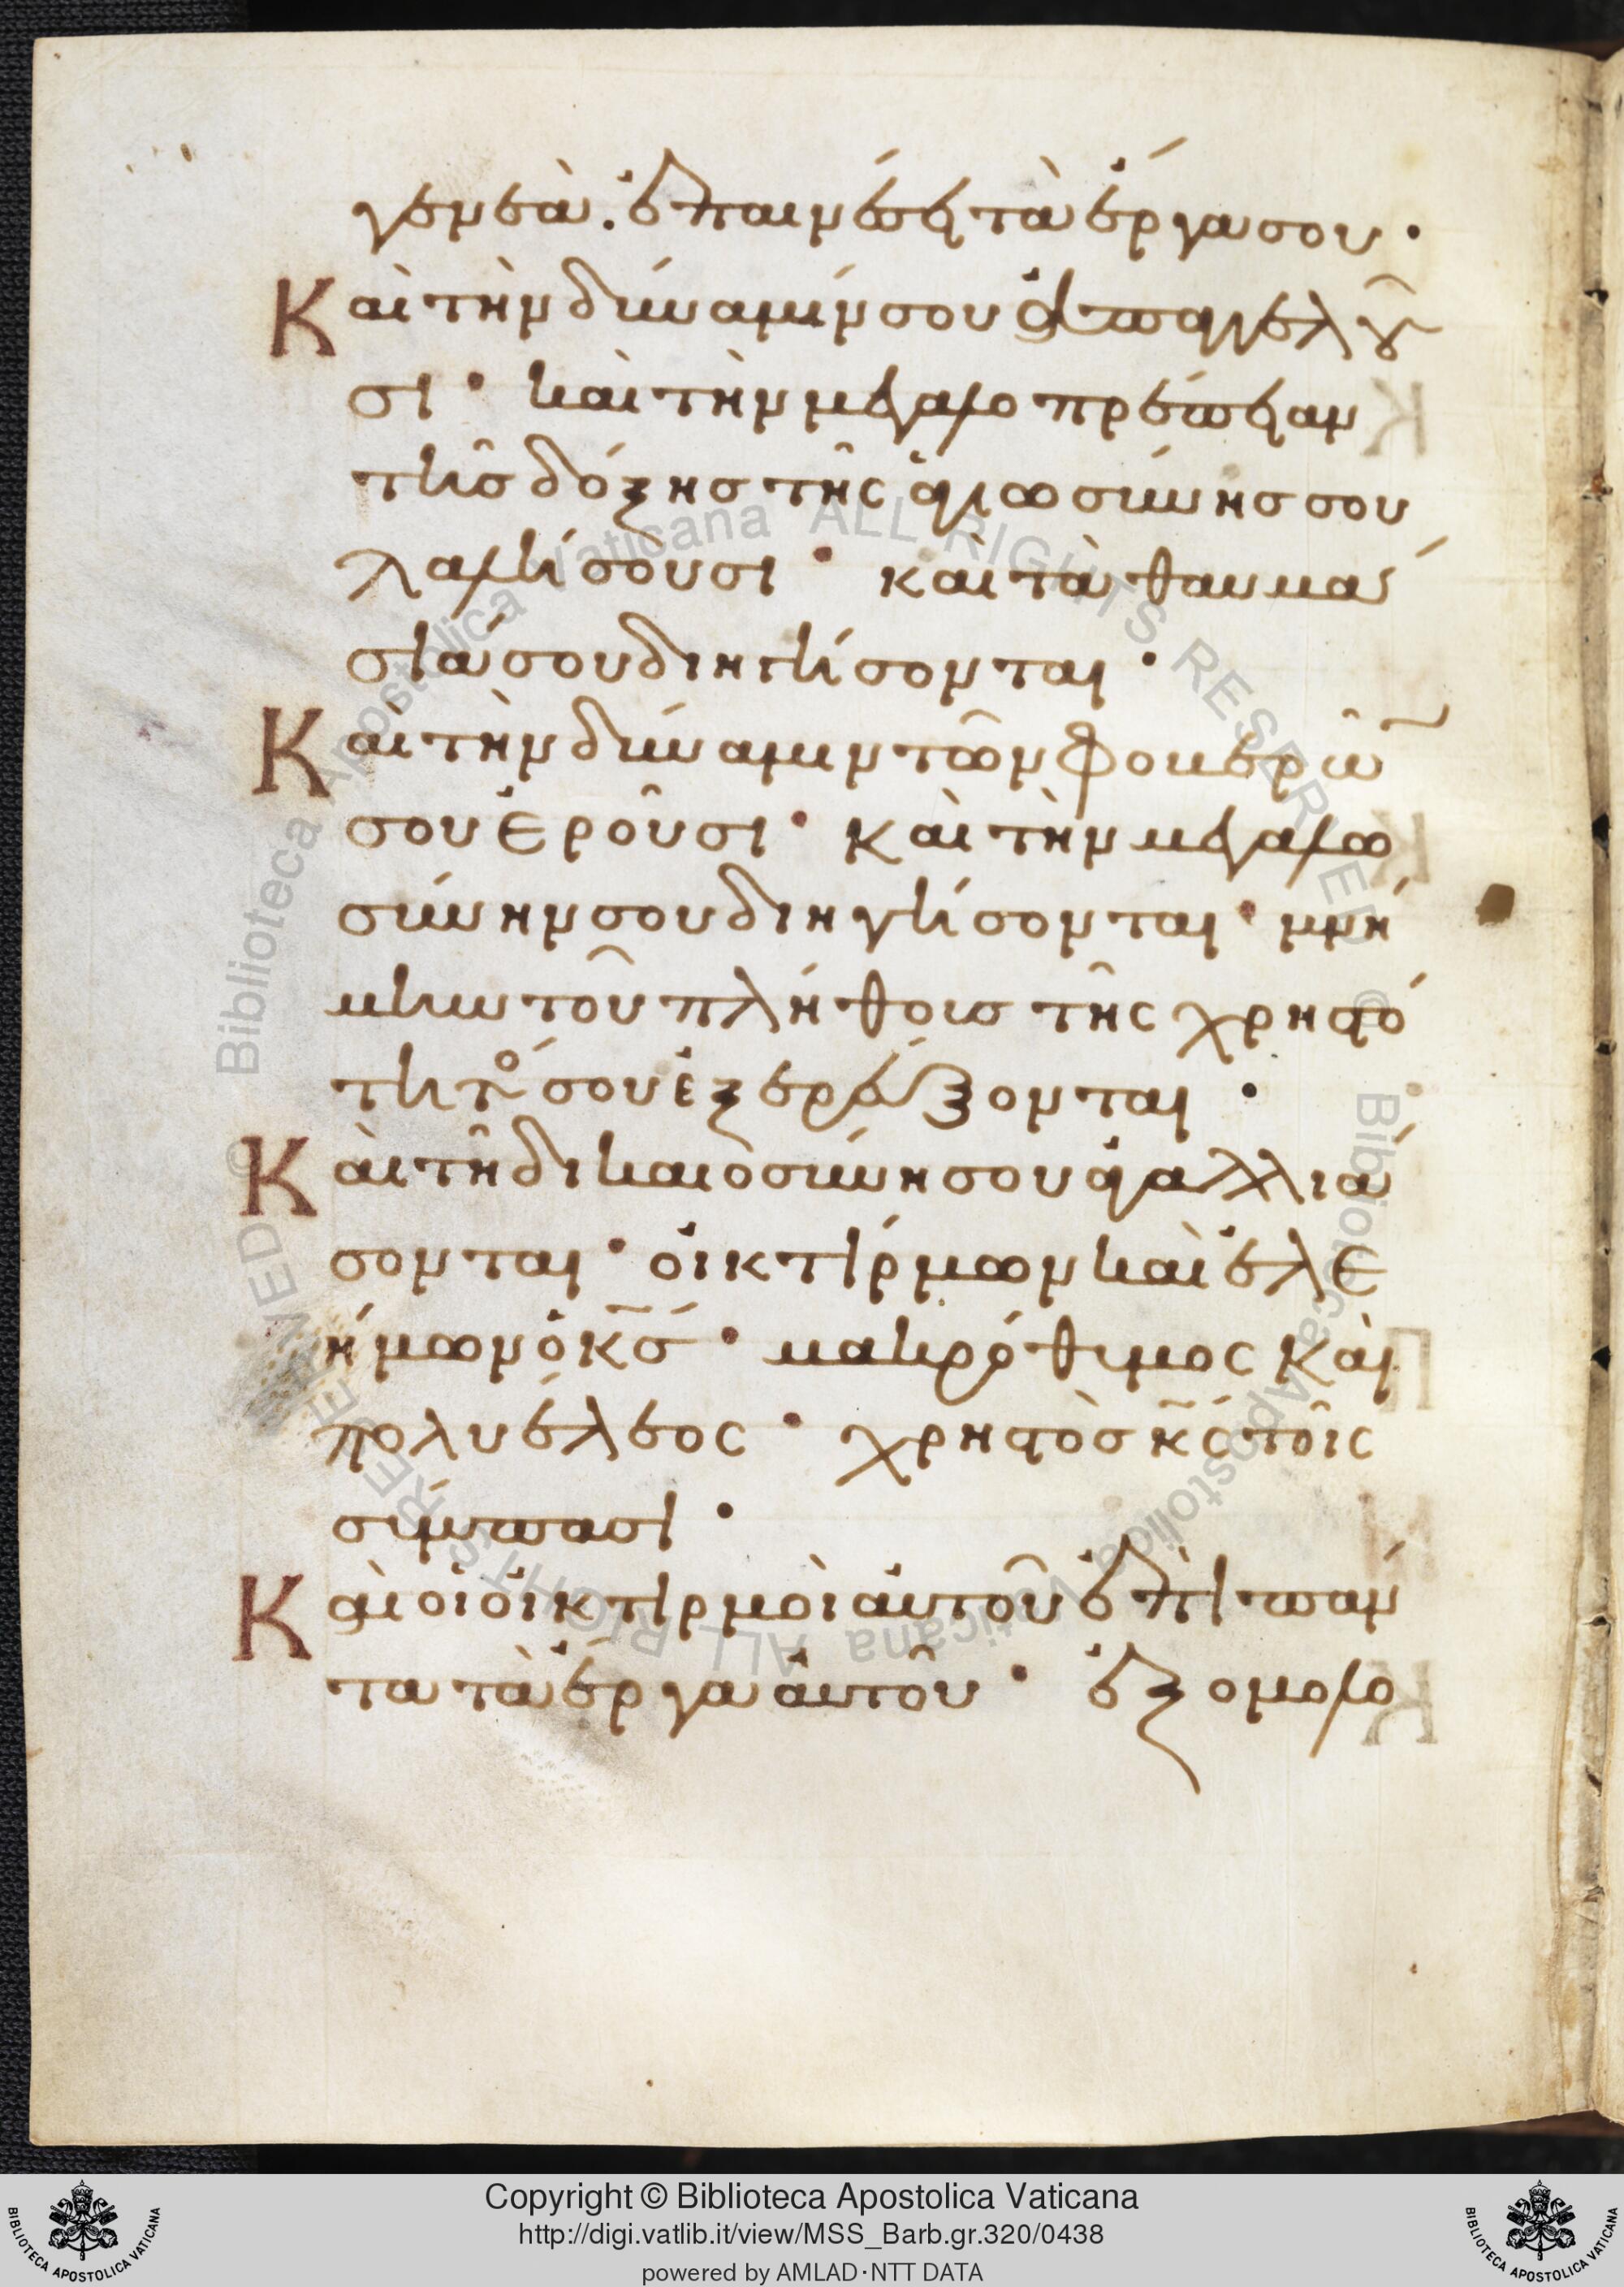 γενεὰ. ἐπαινέσει τὰ ἔργα σου·
Καὶ τὴν δύναμίν σου ἀπαγγελοῦ
σι· καὶ τὴν μεγαλοπρέπειαν
τῆς δόξης τῆς ἁγιωσύνης σου
λαλήσουσι· καὶ τὰ θαυμά
σιά σου διηγήσονται·
Καὶ τὴν δύναμιν τῶν φοβερῶ̅
σου ἐροῦσι· καὶ τὴν μεγαλω
σύνην σου διηγήσονται· μνή
μην τοῦ πλήθους τῆς χρηστό
τητό σου ἐξερεύξονται·
Καὶ τῆ δικαιοσύνη σου ἀγαλλιά
σονται· οἰκτίρμων καὶ ἐλε
ήμων ὁ κ̅ς· μακρόθυμος καὶ
πολυέλεος· χρηστὸς κ̅ς τοῖς
σύμπασι·
Καὶ οἱ οἰκτιρμοὶ αὐτοῦ ἐπὶ πάν
τα τὰ ἔργα αὐτοῦ· ἐξομολο
© Biblioteca Apostolica Vaticana ALL RIGHTS RESERVED
© Biblioteca Apostolica Vaticana ALL RIGHTS RESERVED
Copyright © Biblioteca Apostolica Vaticana
http://digi.vatlib.it/view/MSS_Barb.gr.320/0438
powered by AMLAD·NTT DATA
BIBLIOTECA APOSTOLICA VATICANA
BIBLIOTECA APOSTOLICA VATICANA